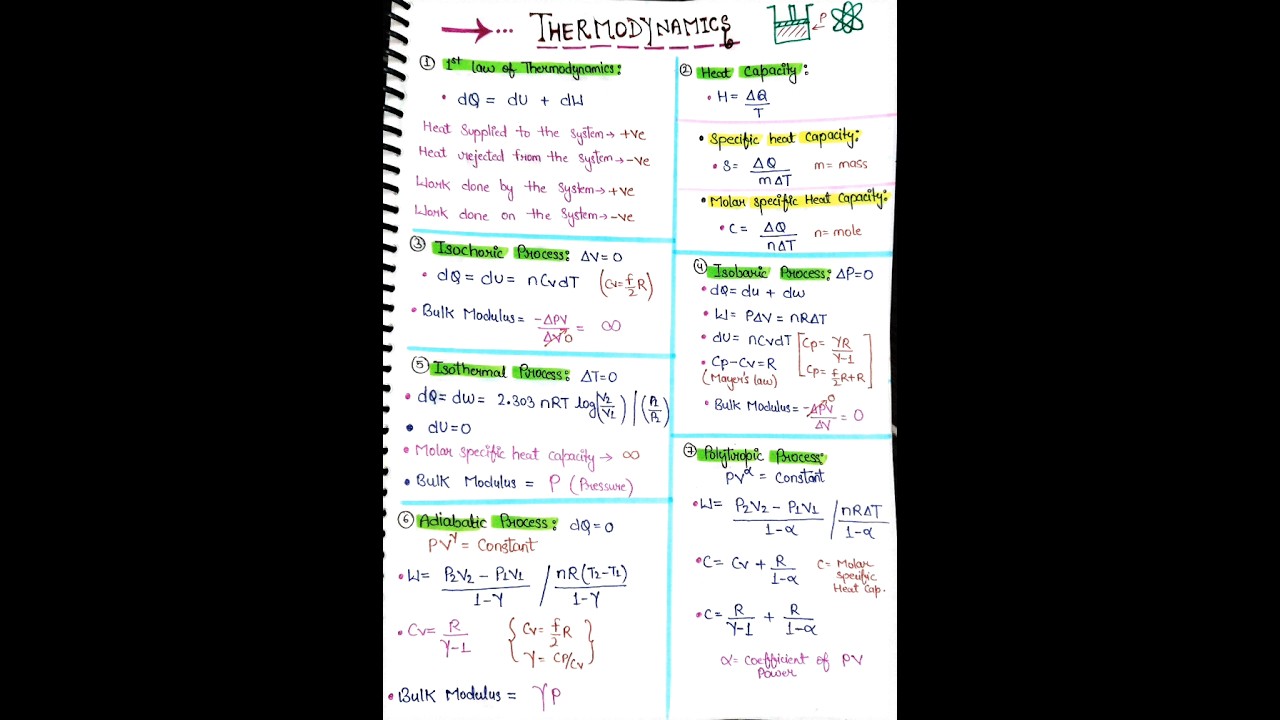 THERMODYNAMICS
P
① 1st law of Thermodynamics:
• dQ = dU + dW
Heat Supplied to the System → +ve
Heat rejected from the System → -ve
Work done by the System → +ve
Work done on the System → -ve
② Heat Capacity:
• H = ΔQ/T
• Specific heat capacity:
• S = ΔQ/mΔT m = mass
• Molar specific Heat Capacity:
• C = ΔQ/nΔT n = mole
③ Isochoric Process: ΔV = 0
• dQ = dU = nCvdT (Cv = f/2 R)
• Bulk Modulus = -ΔPV/ΔV→0 = ∞
④ Isobaric Process: ΔP = 0
• dQ = du + dw
• W = PΔV = nRΔT
• dU = nCvdT [Cp = γR/γ-1
• Cp - Cv = R Cp = f/2 R + R]
(Mayer's law)
• Bulk Modulus = -ΔP→0 V/ΔV = 0
⑤ Isothermal Process: ΔT = 0
• dQ = dw = 2.303 nRT log(V2/V1) | (P1/P2)
• dU = 0
• Molar specific heat capacity → ∞
• Bulk Modulus = P (Pressure)
⑥ Adiabatic Process: dQ = 0
PV^γ = Constant
• W = P2V2 - P1V1/1-γ / nR(T2-T1)/1-γ
• Cv = R/γ-1 {Cv = f/2 R
γ = CP/CV}
• Bulk Modulus = γP
⑦ Polytropic Process:
PV^α = Constant
• W = P2V2 - P1V1/1-α / nRΔT/1-α
• C = Cv + R/1-α C = Molar
Specific
Heat Cap.
• C = R/γ-1 + R/1-α
α = coefficient of PV
Power